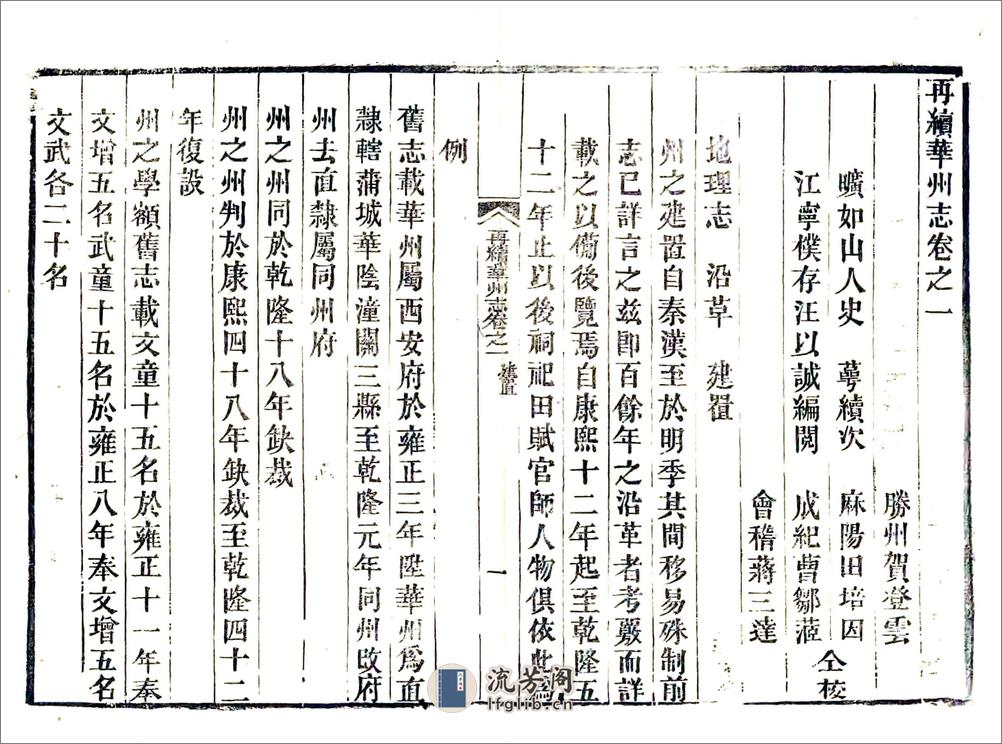 再續華州志卷之一
勝州賀登雲
曠如山人史 萼續次 麻陽田培因
江寧樸存汪以誠編閱 成紀曹鄒蒞 仝校
會稽蔣三達
地理志 沿革 建置
州之建置自秦漢至於明季其間移易殊制前
志已詳言之茲即百餘年之沿革者考覈而詳
載之以備後覽焉自康熙十二年起至乾隆五
十二年止以後祠祀田賦官師人物俱依此為
例
再續華州志卷之一 建置 一
舊志載華州屬西安府於雍正三年陞華州為直
隸轄蒲城華陰潼關三縣至乾隆元年同州改府
州去直隸屬同州府
州之州同於乾隆十八年缺裁
州之州判於康熙四十八年缺裁至乾隆四十二
年復設
州之學額舊志載文童十五名於雍正十一年奉
文增五名武童十五名於雍正八年奉文增五名
文武各二十名
流芳阁
lfglib.cn